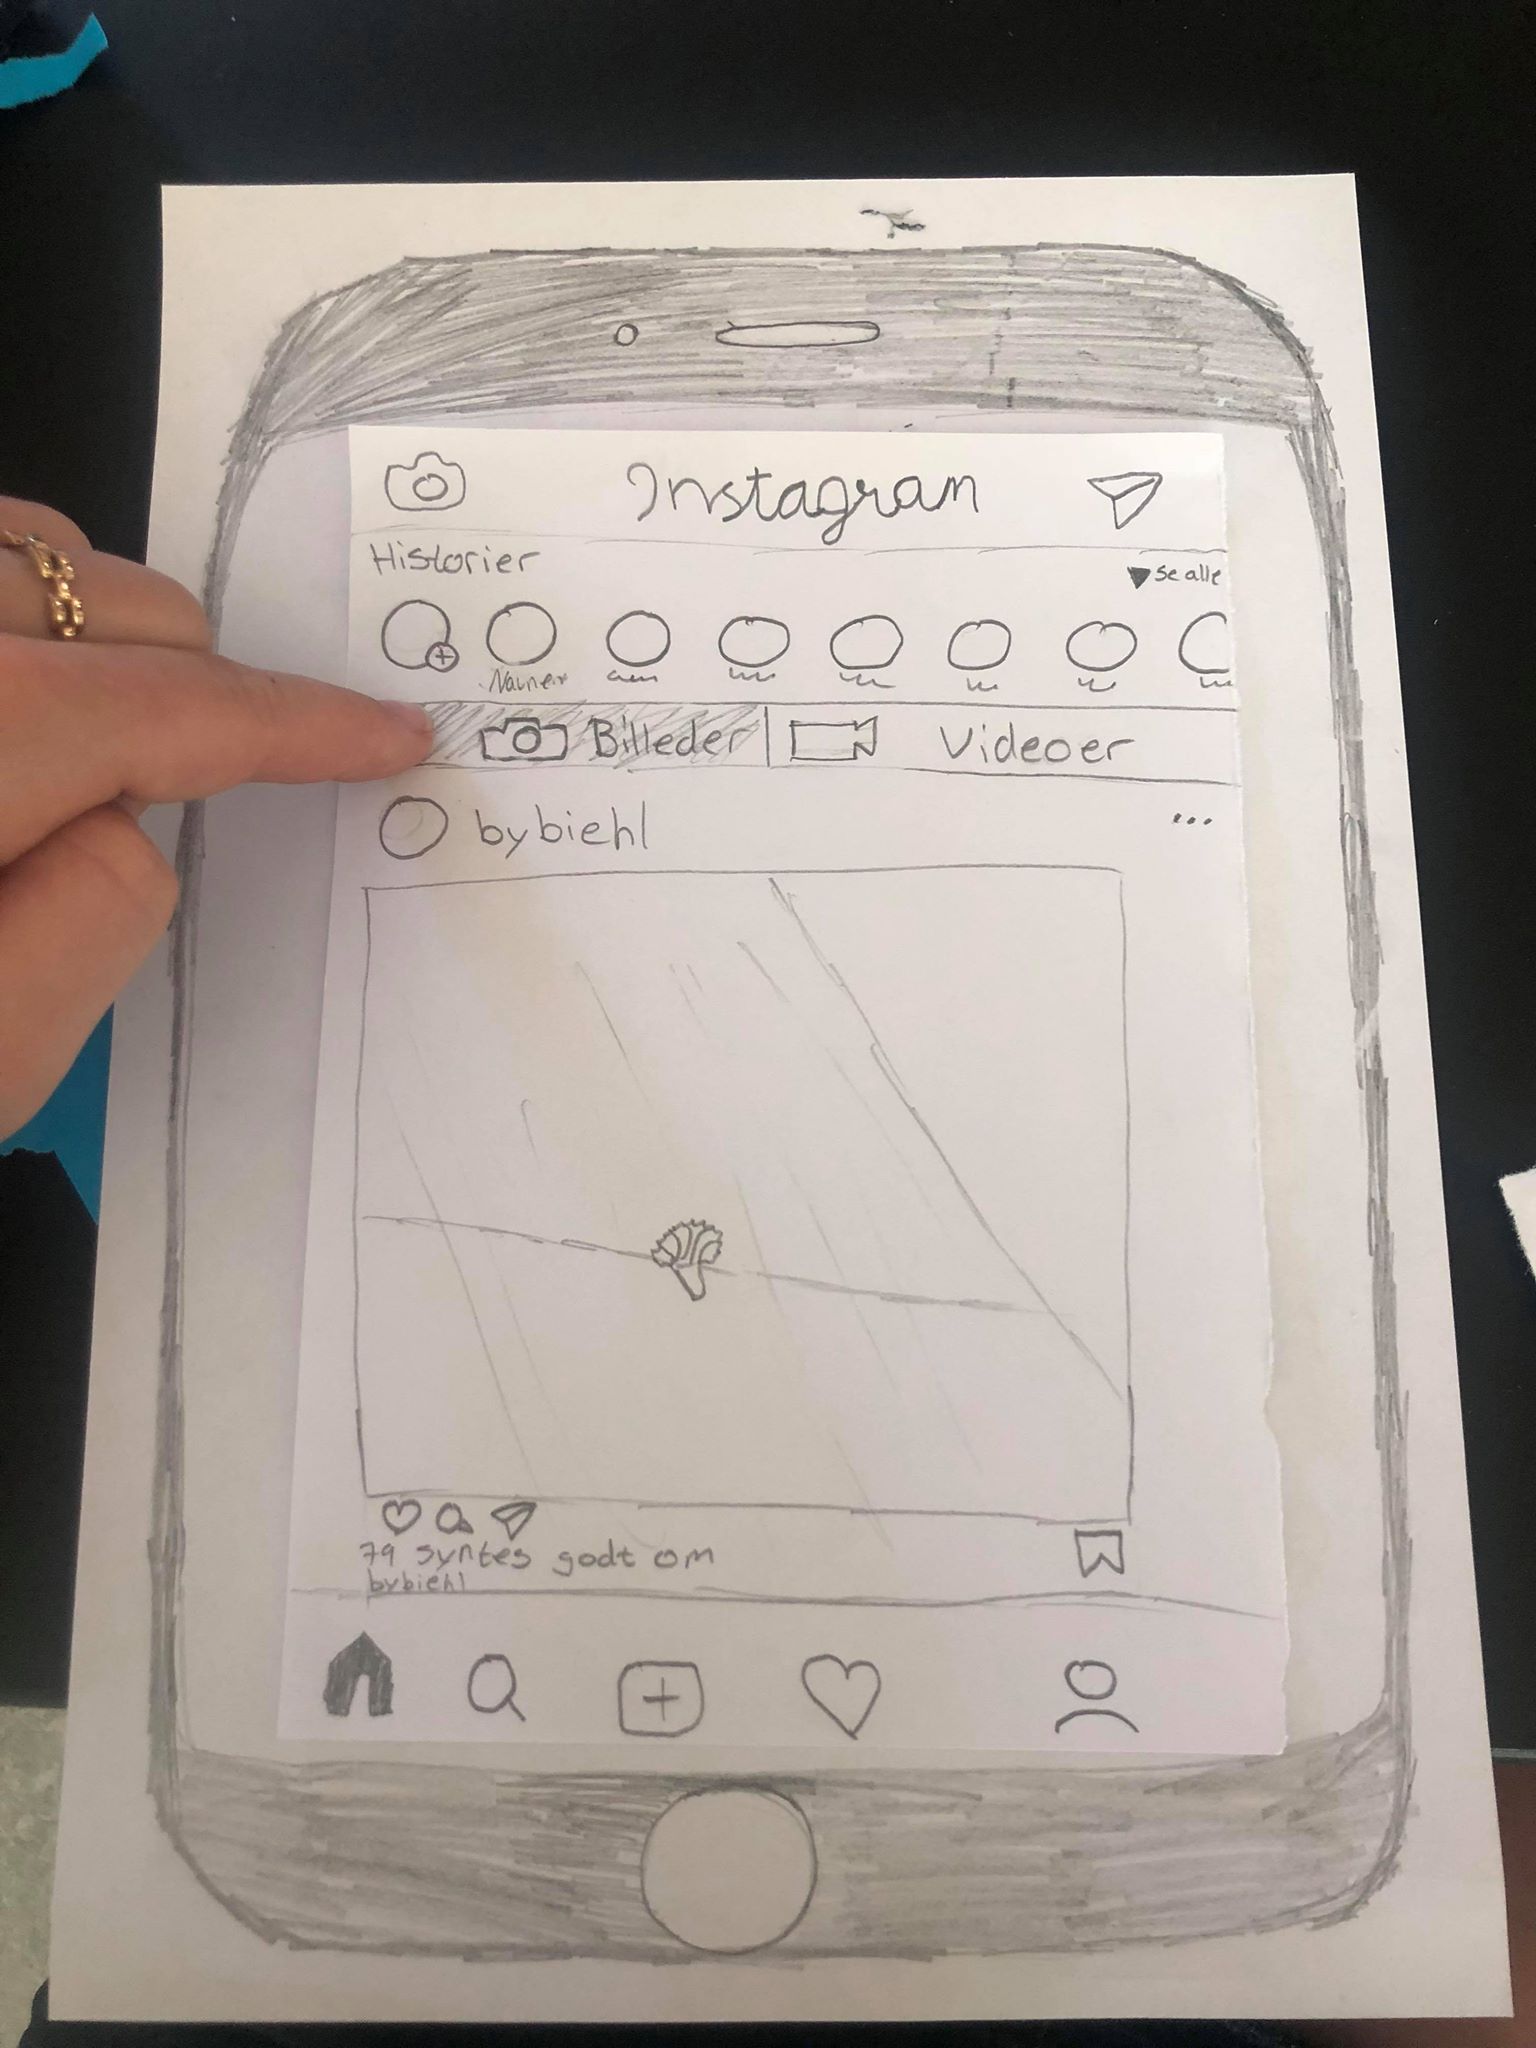 Instagram
Historier
se alle
Navner
Billeder
Videoer
bybiehl
...
79 syntes godt om
bybiehl